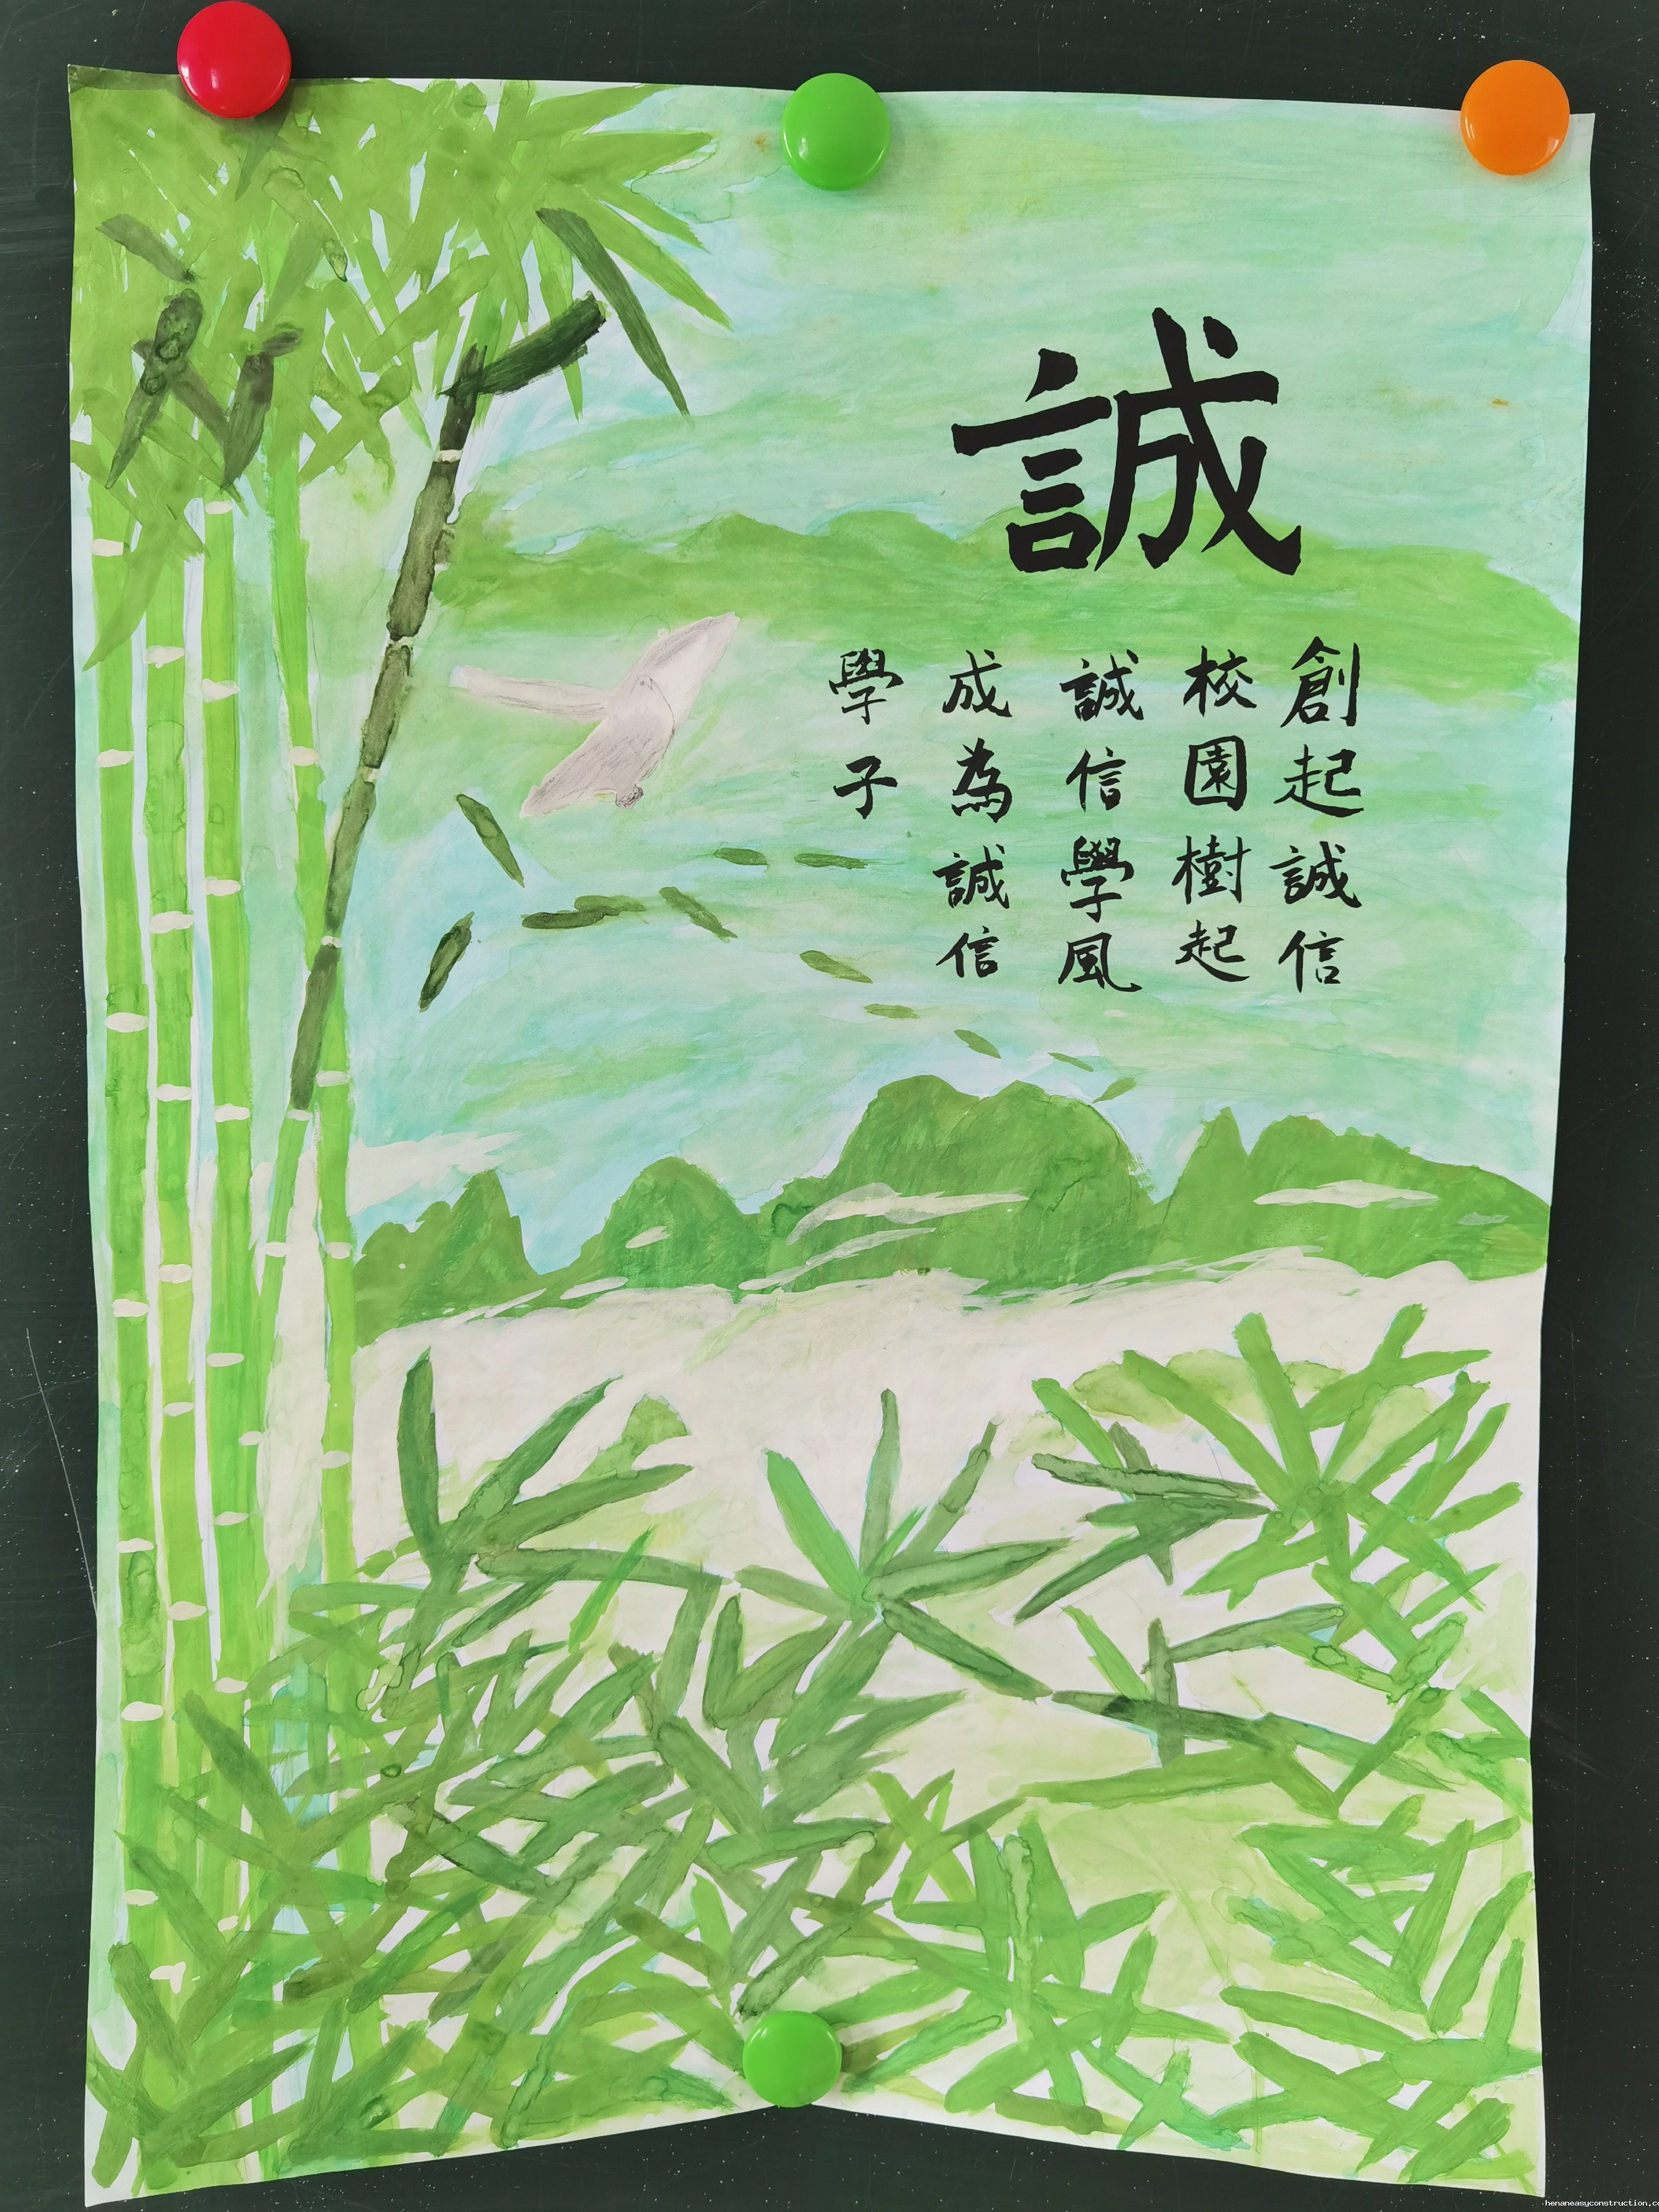 誠
創起誠信
校園樹起
誠信學風
成為誠信
學子
henaneasyconstruction.c